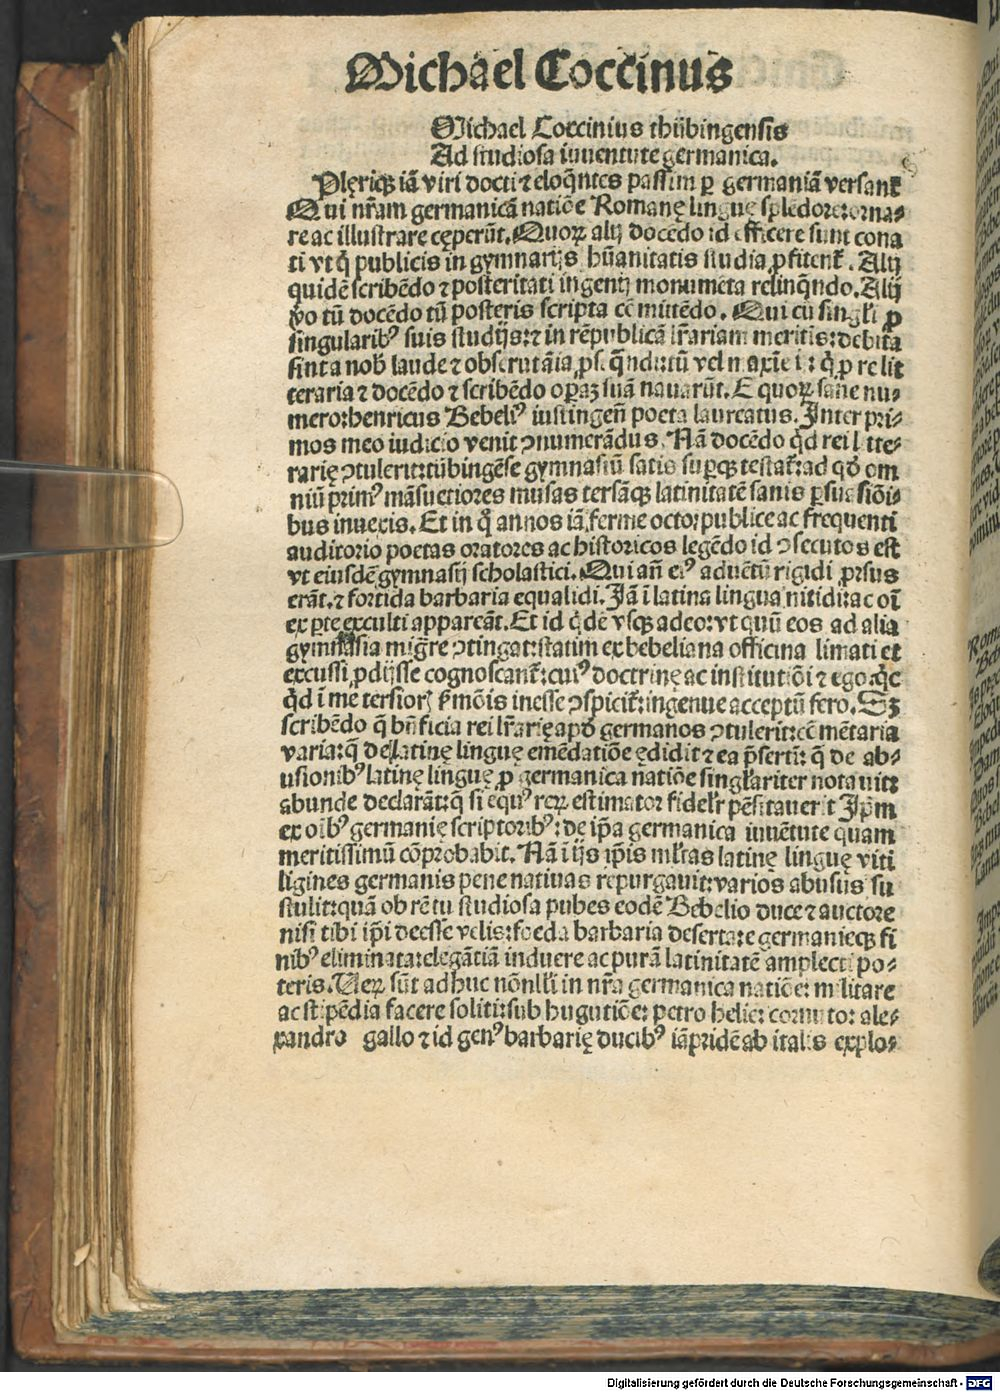 Michael Coccinus
Michael Coccinius thübingensis
Ad studiosā iuuentutē germanicā.
Plęriq̃ iā viri docti ⁊ eloq̃ntes passim ꝑ germaniā versant᷑
Qui nr̄am germanicā natiōē Romanę linguę splēdore: orna⸗
re ac illustrare cęperūt. Quoꝝ alij docēdo id efficere sunt cona
ti vt q̄ publicis in gymnasijs hūanitatis studia ꝓfitent᷑. Alij
quidē scribēdo ⁊ posteritati ingenij monumēta relinq̄ndo. Alij
ꝟo tū docēdo tū posteris scripta cōmittēdo. Qui cū singl̄i ꝓ
singularibꝰ suis studijs: ⁊ in rēpublicā lr̄ariam meritis: debita
literaria ⁊ docēdo ⁊ scribēdo oꝑaꝫ suā nauarūt. E quoꝝ sane nu⸗
mero: henricus Bebeliꝰ iustingeñ poeta laureatus. Inter pri⸗
mos meo iudicio venit ↄnumerādus. Nā docēdo q̄d rei litte⸗
rarię ↄtulerit: tübingēse gymnasiū satis suꝑq̃ testat᷑: ad qđ om
niū primꝰ māsuetiores musas tersāq̃ latinitatē sanis ꝑsuasiōi⸗
bus inuexis. Et in q̊ annos iā ferme octo: publice ac frequenti
auditorio poetas oratores ac historicos legēdo id ↄsecutos est
vt eiusdē gymnasij scholastici. Qui añ eiꝰ aduētū rigidi ꝓrsus
erāt. ⁊ fortida barbaria equalidi. Iā ī latina lingua nitidi: ac oī
ex ꝑte exculti appareāt. Et id q̇dē vsq̃ adeo: vt quū eos ad alia
gymnasia migr̄re ↄtingat: statim ex bebeliana officina limati et
excussi ꝓdijsse cognoscant᷑: cuiꝰ doctrinę ac institutiōi ⁊ ego: q̇cq̇d ī me tersioris ẜmōis inesse ↄspicit᷑: ingenue acceptū fero. Sꝫ
scribēdo q̄ bn̄ficia rei lr̄arię apđ germanos ↄtulerit: cōmētaria
varia: q̄ de latinę linguę emēdatiōe ędidit ⁊ ea p̄sertī: q̄ de ab⸗
usionibꝰ latinę linguę ꝓ germanica natiōe singl̄ariter notauit:
abunde declarāt: q̄ si equꝰ reꝝ estimator fidel̄r pēsitauerit Ip̄m
ex oībꝰ germanię scriptoribꝰ: de ip̄a germanica iuuētute quam
meritissimū cōprobabit. Nā ī ijs ip̄is ml̄tas latinę linguę viti
ligines germanis pene natiuas repurgauit: varios abusus su
stulit: quā ob rē tu studiosa pubes eodē Bebelio duce ⁊ auctore
nisi tibi ip̄i deesse velis: foeda barbaria deserta: e germanieq̃ fi
nibꝰ eliminata: elegātiā induere ac purā latinitatē amplecti po⸗
teris. Veꝝ sūt adhuc nōnll̄i in nr̄a germanica natiōe: militare
ac stipēdia facere soliti: sub hugutiōe: petro helie: cornuto: ale⸗
xandro gallo ⁊ id genꝰ barbarię ducibꝰ iāpridē ab italis explo⸗
Digitalisierung gefördert durch die Deutsche Forschungsgemeinschaft - DFG